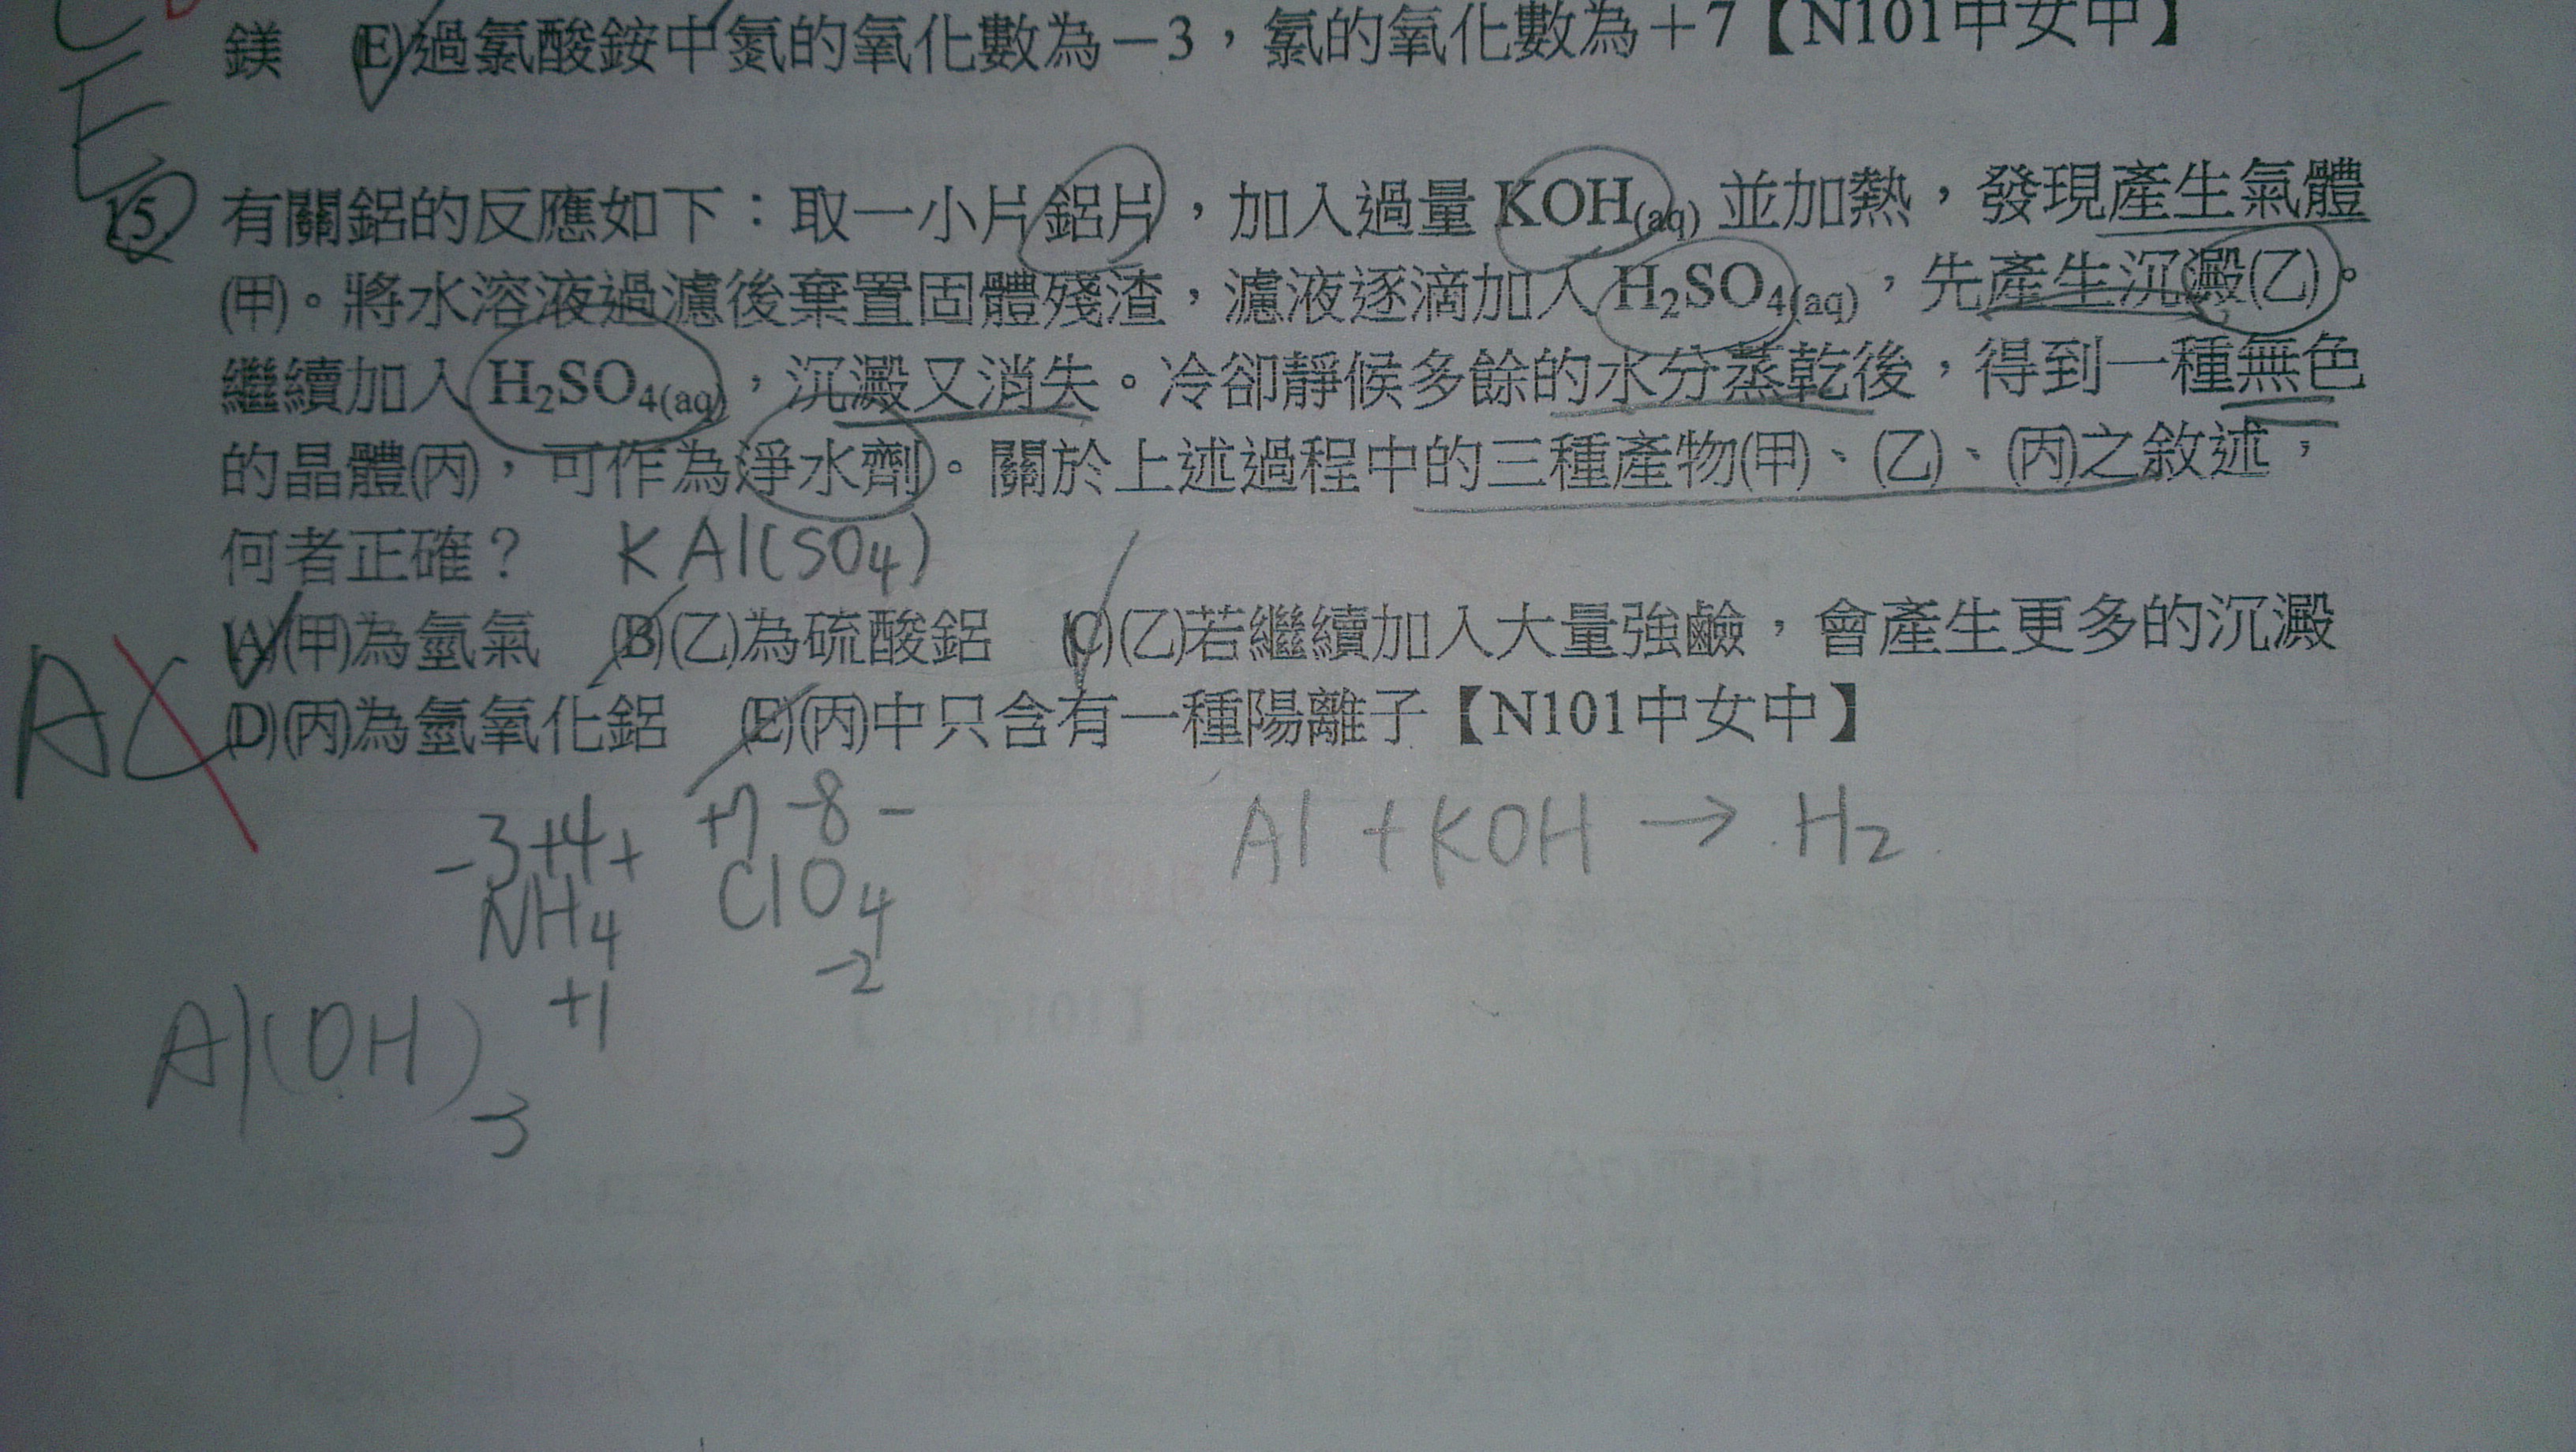 鎂 (E)過氯酸銨中氮的氧化數為－3，氯的氧化數為＋7【N101中女中】
E
15 有關鋁的反應如下：取一小片鋁片，加入過量 KOH(aq) 並加熱，發現產生氣體
(甲)。將水溶液過濾後棄置固體殘渣，濾液逐滴加入 H₂SO₄(aq)，先產生沉澱(乙)。
繼續加入 H₂SO₄(aq)，沉澱又消失。冷卻靜候多餘的水分蒸乾後，得到一種無色
的晶體(丙)，可作為淨水劑。關於上述過程中的三種產物(甲)、(乙)、(丙)之敘述，
何者正確？ KAl(SO₄)
(A)(甲)為氫氣 (B)(乙)為硫酸鋁 (C)(乙)若繼續加入大量強鹼，會產生更多的沉澱
AC
(D)(丙)為氫氧化鋁 (E)(丙)中只含有一種陽離子【N101中女中】
-3+4+ +7 -8 -
NH₄ ClO₄ Al + KOH → H₂
+1 -2
Al(OH)₃